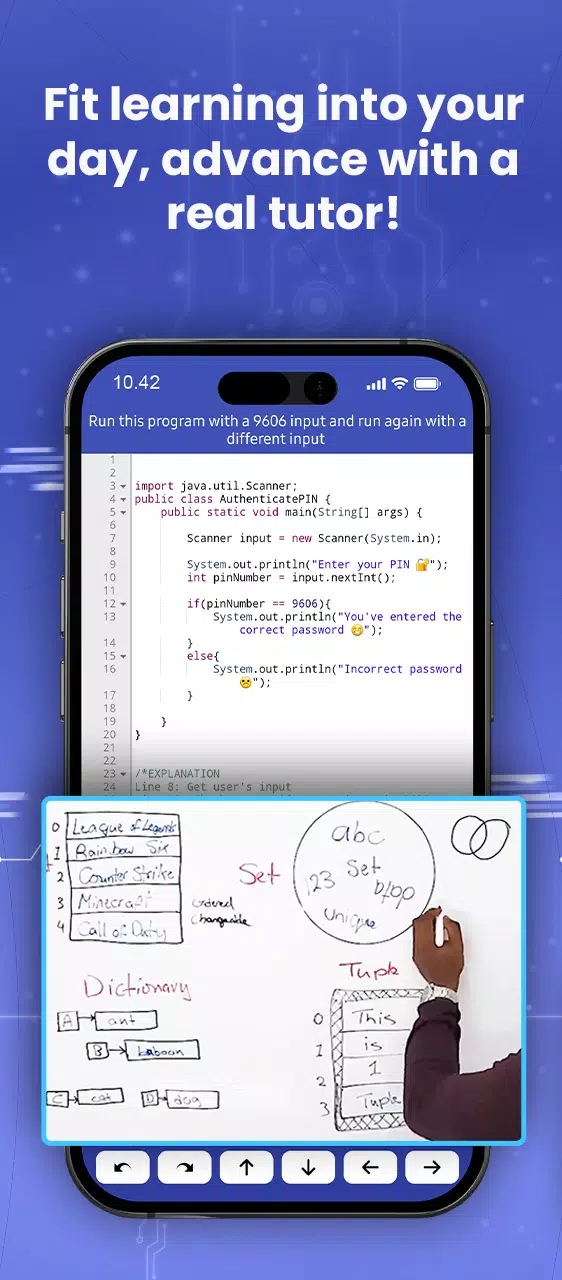 Fit learning into your
day, advance with a
real tutor!
10.42
Run this program with a 9606 input and run again with a
different input
1
2
3 import java.util.Scanner;
4 public class AuthenticatePIN {
5 public static void main(String[] args) {
6
7 Scanner input = new Scanner(System.in);
8
9 System.out.println("Enter your PIN 🔐");
10 int pinNumber = input.nextInt();
11
12 if(pinNumber == 9606){
13 System.out.println("You've entered the
correct password 😁");
14 }
15 else{
16 System.out.println("Incorrect password
😕");
17 }
18
19 }
20 }
21
22
23 /*EXPLANATION
24 Line 8: Get user's input
0 League of Legends
1 Rainbow Six
2 Counter Strike
3 Minecraft
4 Call of Duty
Ordered
Changeable
Set
abc
123
Set
unique
Dictionary
A ant
B baboon
C cat
D dog
Tuple
0 This
1 is
2 1
3 Tuple